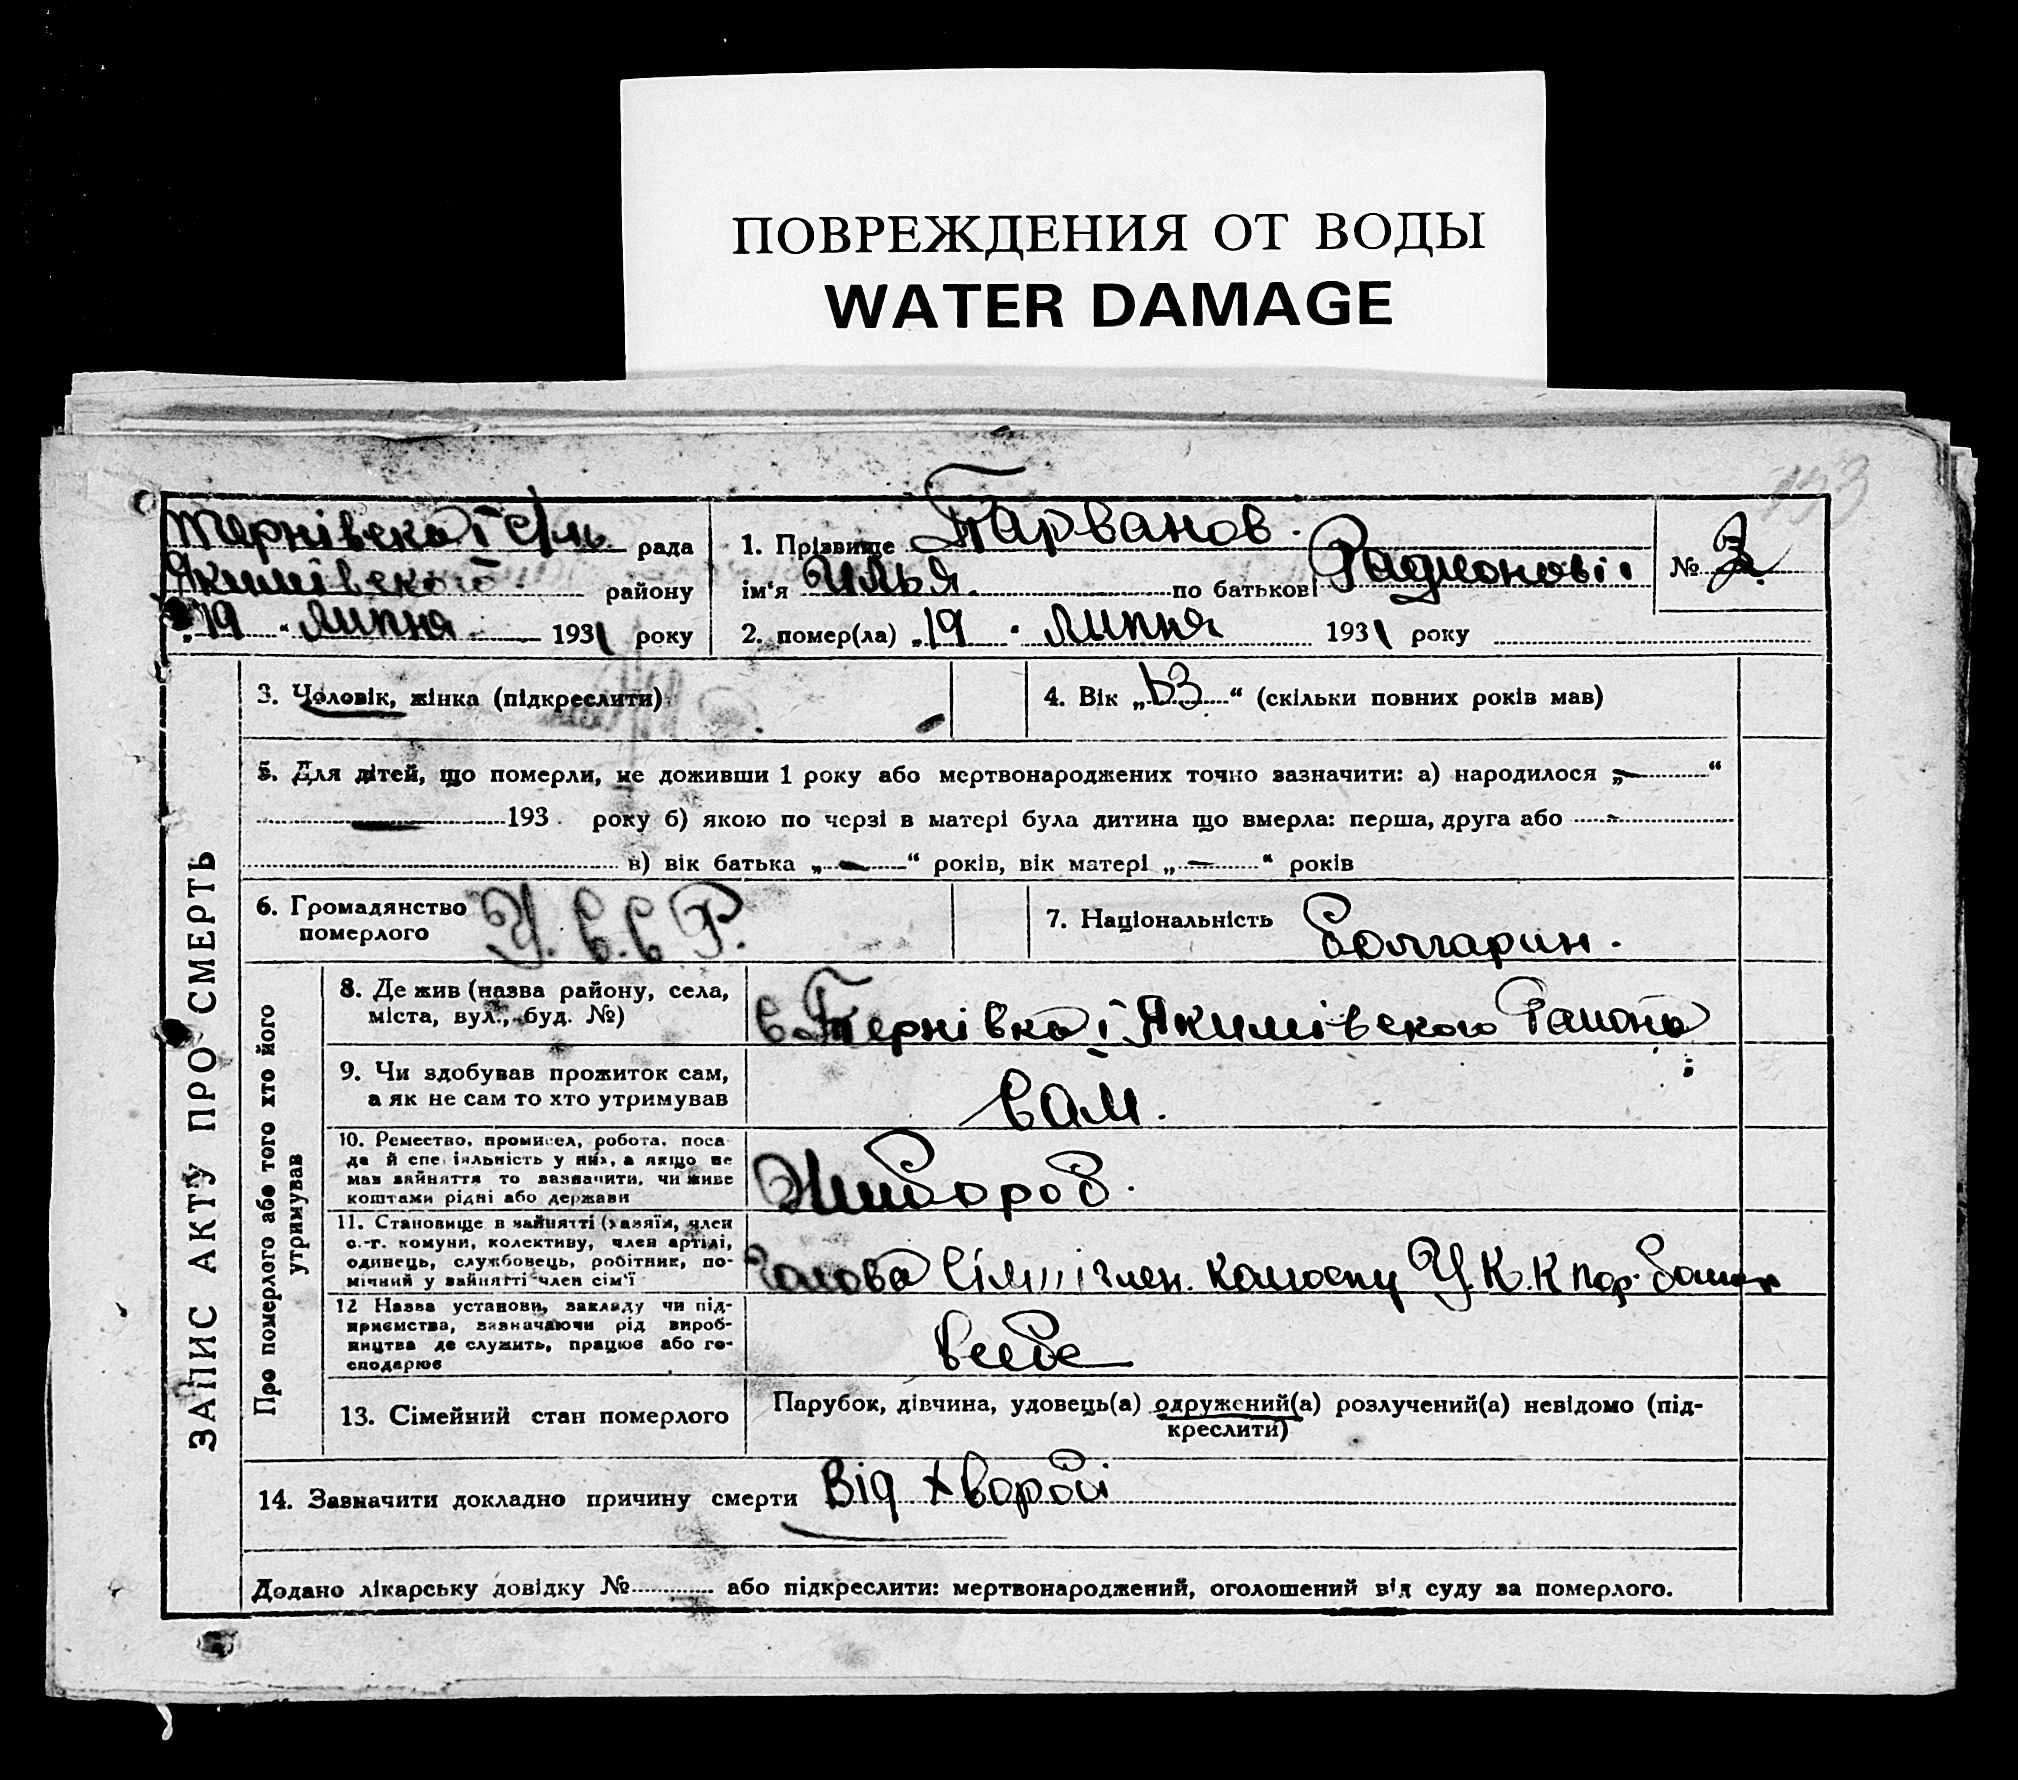 ПОВРЕЖДЕНИЯ ОТ ВОДЫ
WATER DAMAGE
133
Тернівської Сіль рада
Якимівського району
„19“ липня 1931 року
1. Прізвище Тарванов.
ім'я Илья по батькові Радионовіч
№ 3
2. помер(ла) „19“ липня 1931 року
ЗАПИС АКТУ ПРО СМЕРТЬ
3. Чоловік, жінка (підкреслити)
4. Вік „53“ (скільки повних років мав)
5. Для дітей, що померли, не доживши 1 року або мертвонароджених точно зазначити: а) народилося „—“
— 193 року б) якою по черзі в матері була дитина що вмерла: перша, друга або –
в) вік батька „—“ років, вік матері „—“ років
6. Громадянство
померлого
У.С.С.Р.
7. Національність Болгарин.
Про померлого або того хто його
утримував
8. Де жив (назва району, села,
міста, вул., буд. №)
с. Тернівка Якимівского Района
9. Чи здобував прожиток сам,
а як не сам то хто утримував
Сам.
10. Ремество, промисел, робота, поса-
да й спеціяльність у них, а якщо не
мав зайняття то зазначити, чи живе
коштами рідні або держави
Хлибороб.
11. Становище в зайнятті (хазяїн, член
с.-г. комуни, колективу, член артілі,
одинець, службовець, робітник, по-
мічний у зайнятті член сім'ї
Голова член.
12 Назва установи, закладу чи під-
приємства, зазначаючи рід вироб-
ництва де служить, працює або го-
сподарює
13. Сімейний стан померлого
Парубок, дівчина, удовець(а) одружений(а) розлучений(а) невідомо (під-
креслити)
14. Зазначити докладно причину смерти Від хвороби
Додано лікарську довідку № або підкреслити: мертвонароджений, оголошений від суду за померлого.